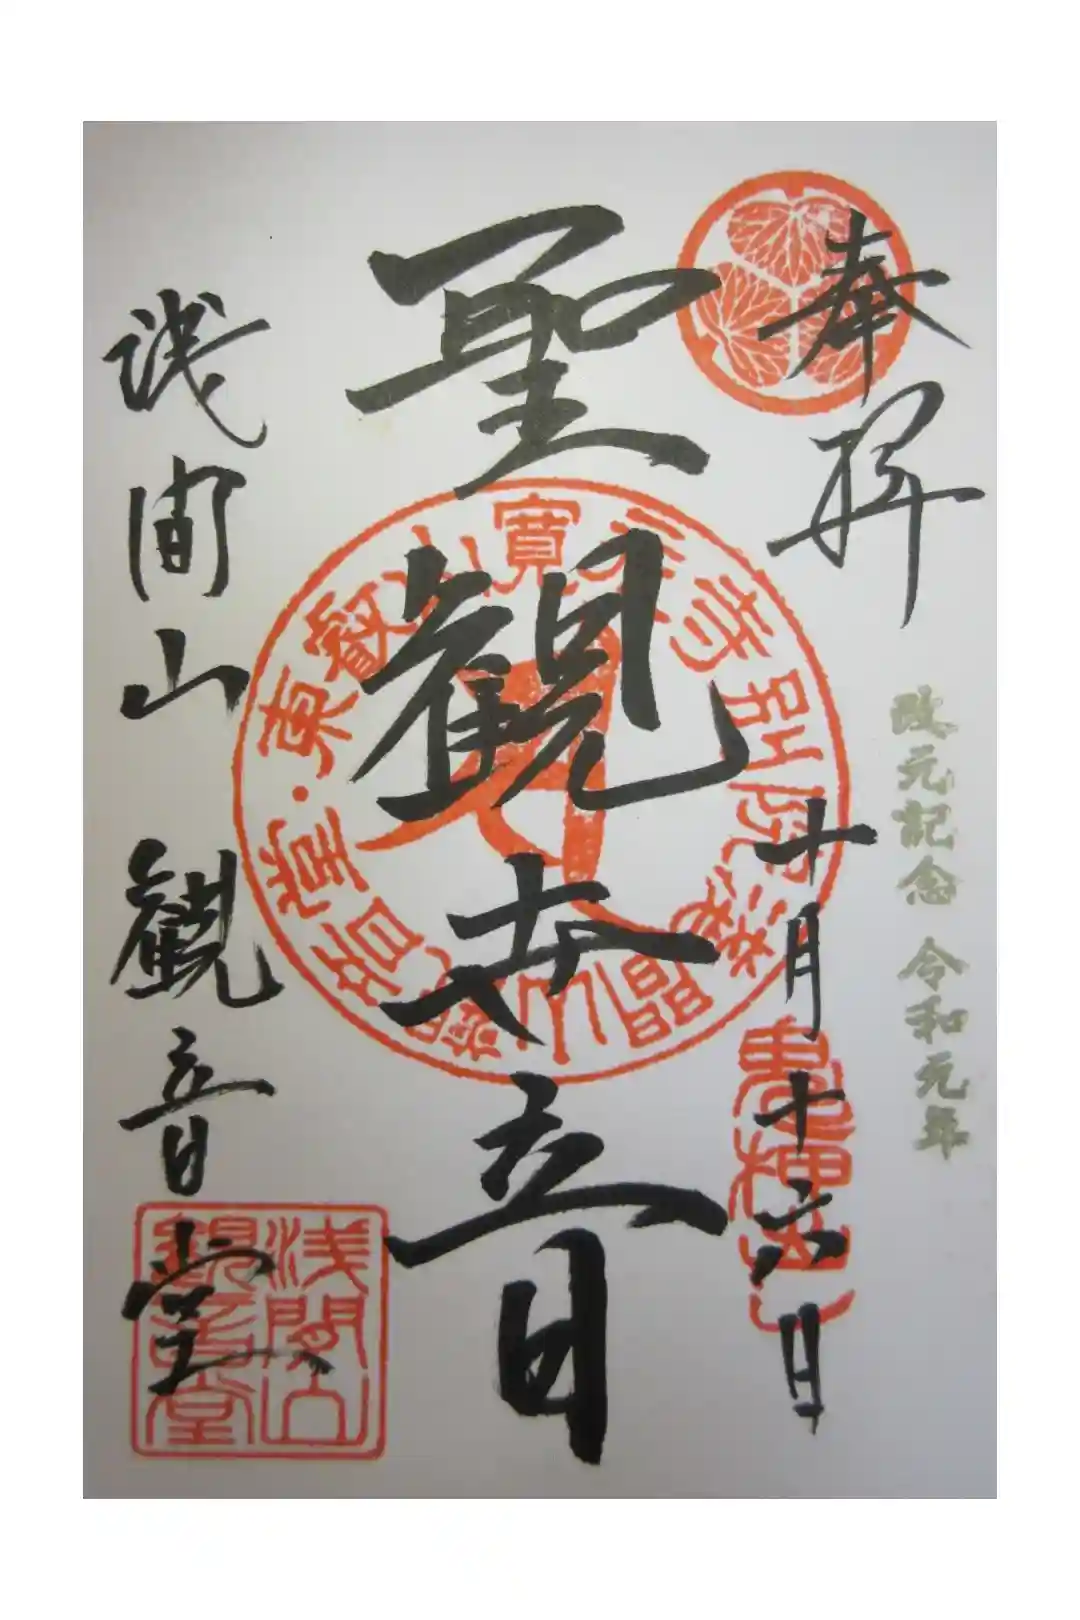 奉拝
改元記念 令和元年
十月十六日
聖観世音
東叡山寛永寺別院浅間山
浅間山観音堂
浅間山
観音堂